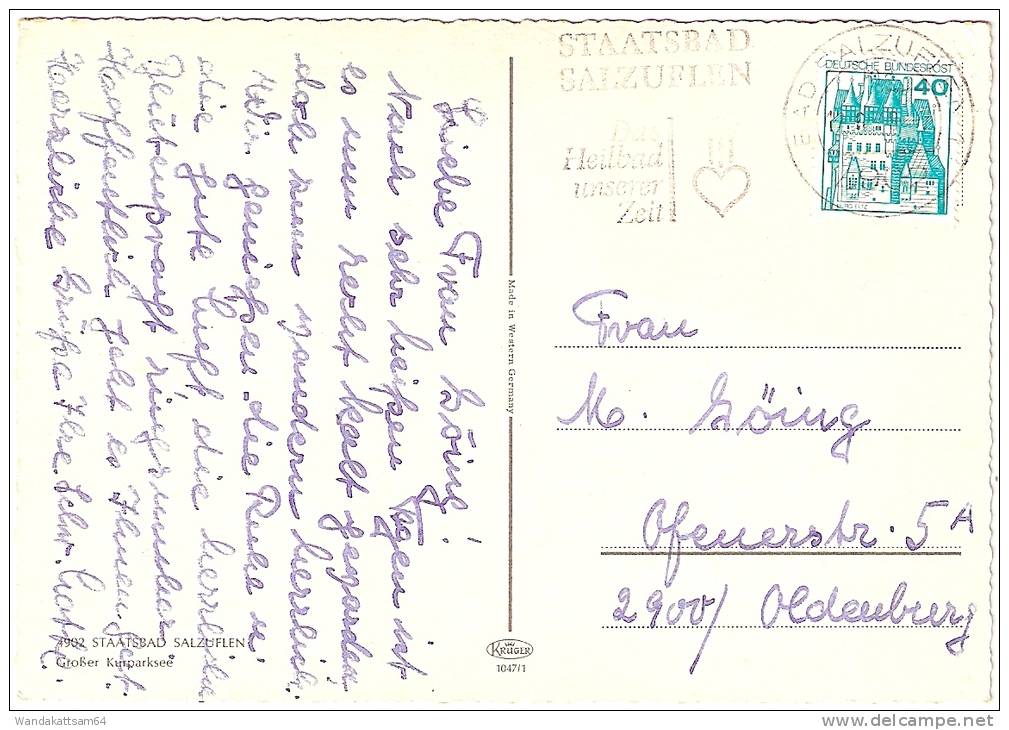 STAATSBAD
SALZUFLEN
Das
Heilbad
unserer
Zeit
BAD SALZUFLEN
DEUTSCHE BUNDESPOST
40
BURG ELTZ
Liebe Frau Göing!
Nach sehr heißen Tagen ist
es nun recht kalt geworden
doch zum wandern herrlich.
Wir genießen die Ruhe u.
die gute Luft die herrliche
Blütenpracht ringsumher.
Hoffentlich geht es Ihnen gut.
Herzliche Grüße Ihre
Made in Western Germany
Frau
M. Göing
Ofenerstr. 5A
2900/ Oldenburg
4902 STAATSBAD SALZUFLEN
Großer Kurparksee
KRÜGER
1047/1
Wandakattsam64
www.delcampe.net